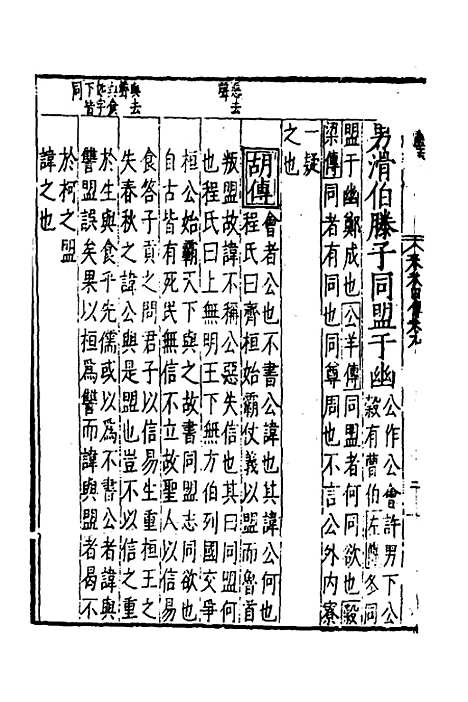 男滑伯滕子同盟于幽公作公會許男下公
穀有曹伯左傳冬同
盟于幽鄭成也公羊傳同盟者何同欲也穀
梁傳同者有同也同尊周也不言公外内寮
一疑
之也
胡傳會者公也不書公諱也其諱公何也
程氏曰齊桓始霸仗義以盟而魯首
叛盟故諱不稱公惡失信也其曰同盟何
也程氏曰上無明王下無方伯列國交爭
桓公始霸天下與之故書同盟志同欲也
自古皆有死民無信不立故聖人以信易
食答子貢之問君子以信易生重桓王之
失春秋之諱公與是盟也豈不以信之重
於生與食乎先儒或以為不書公者諱與
讐盟誤矣果以桓爲讐而諱與盟者曷不
於柯之盟
諱之也
惡去
聲
與去
聲
與食
如字
下皆
同
二